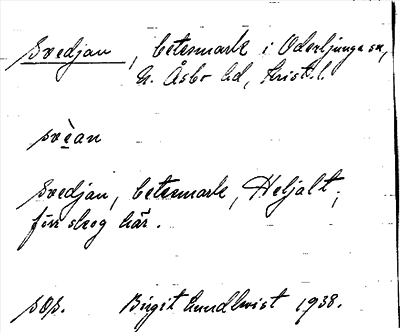 Svedjan, betesmark i Oderljunga sn,
N. Åsbo hd, Krist. l.
svèan
Svedjan, betesmark, Heljalt;
förr skog här.
sOs. Birgit Lundkvist 1938.